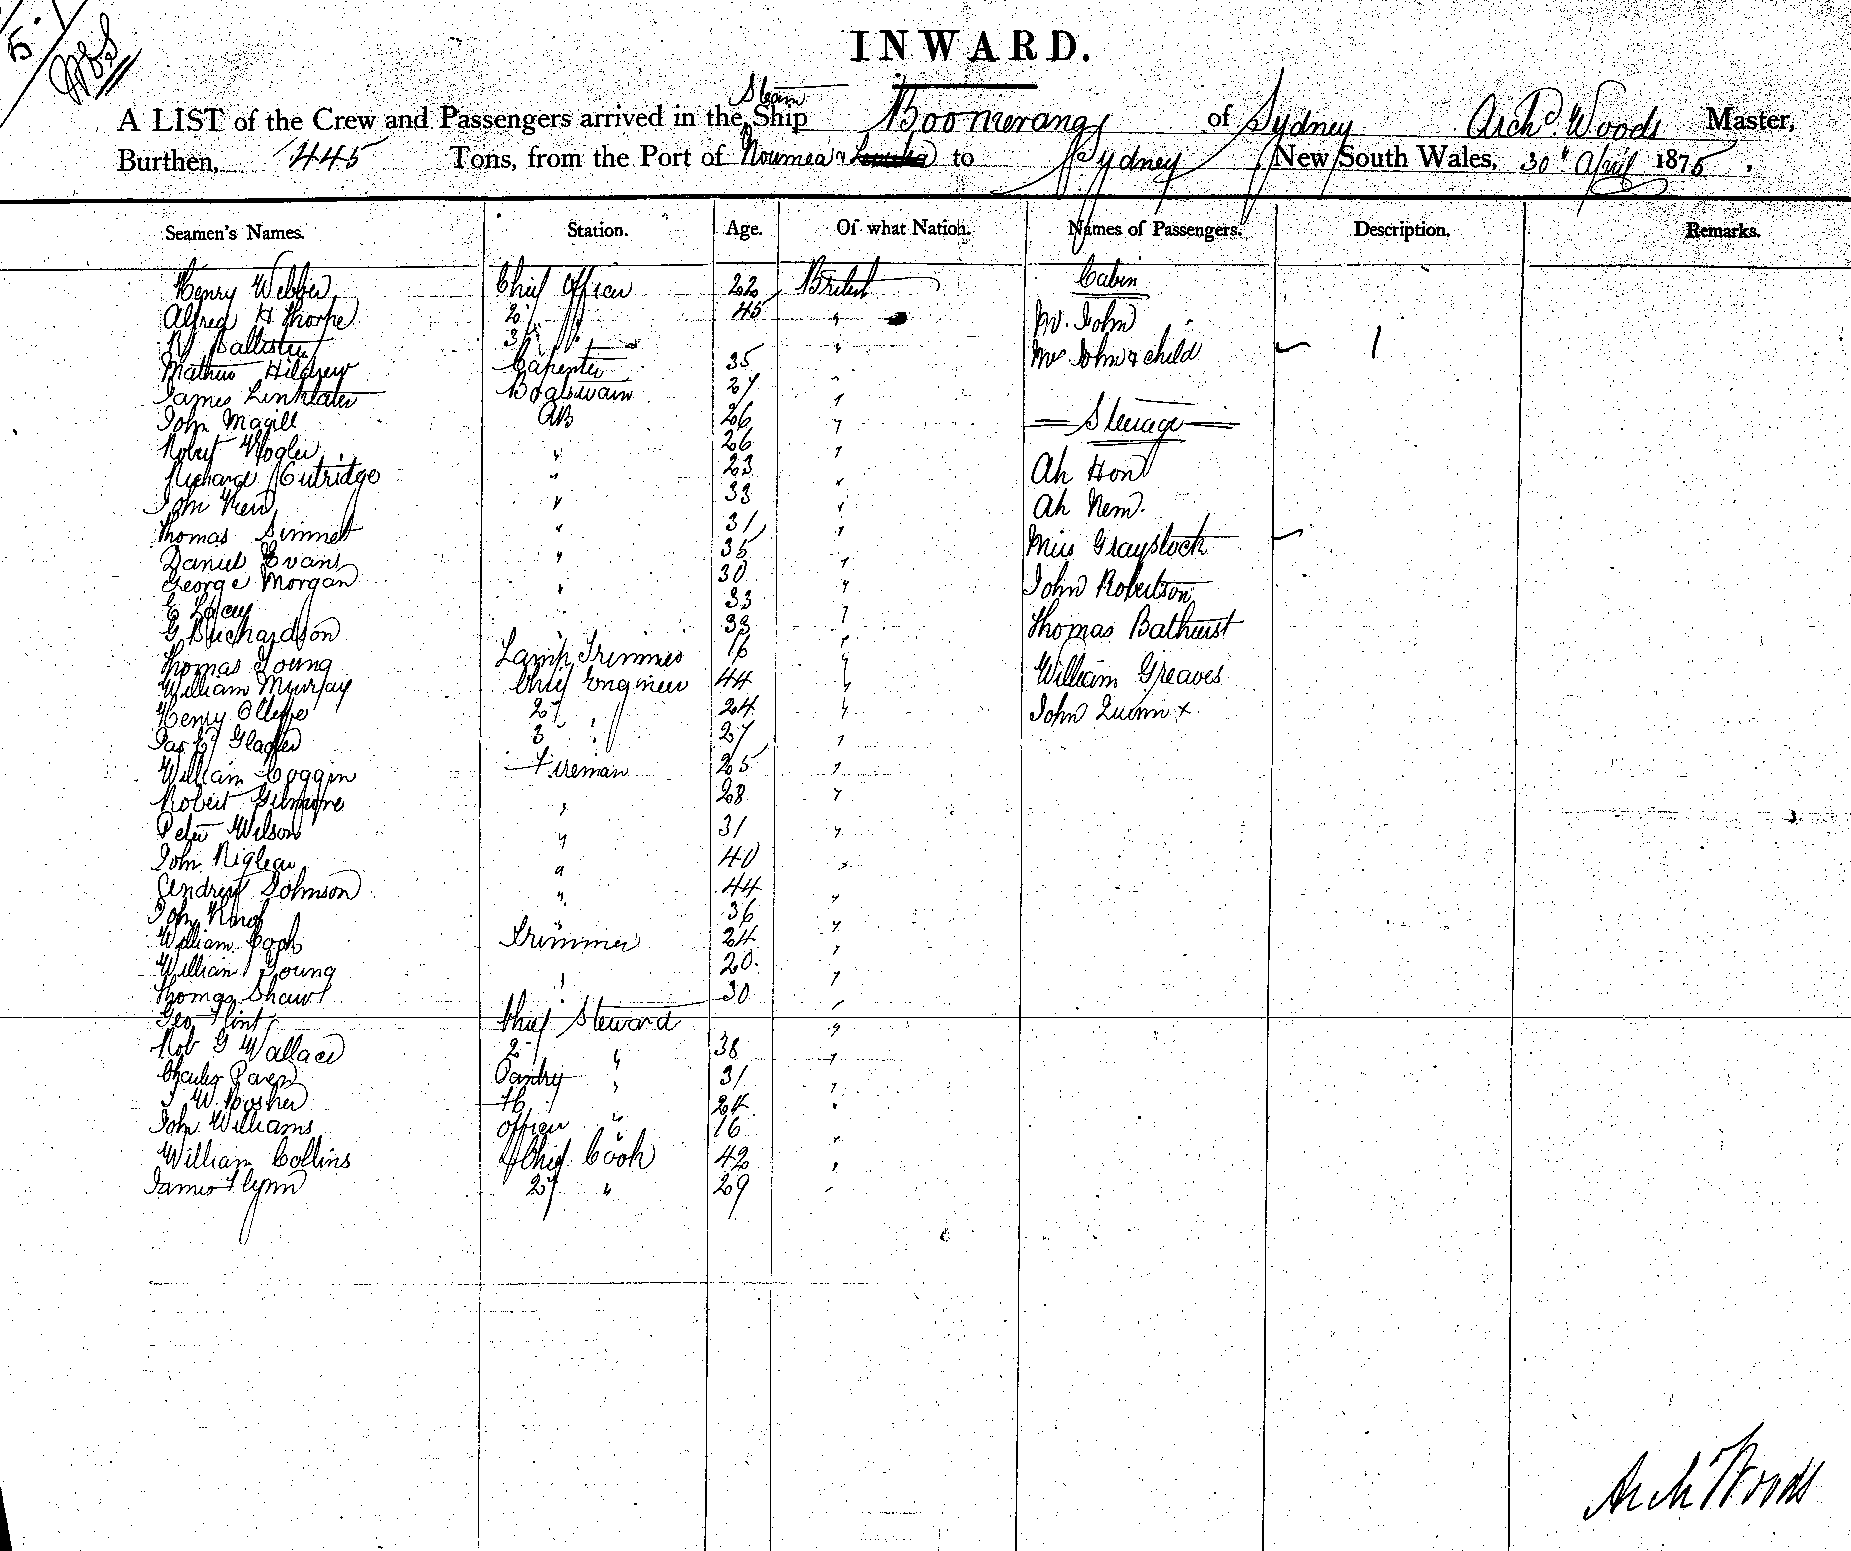 5.
INWARD.
A LIST of the Crew and Passengers arrived in the Steam Ship Boomerang of Sydney Archd Woods Master,
Burthen, 445 Tons, from the Port of Noumea & to Sydney New South Wales, 30th April 1875.
Seamen's Names. Station. Age. Of what Nation. Names of Passengers. Description. Remarks.
Henry Webber Chief Officer 22 British Cabin
Alfred H Thorpe 2 " 45 " Mr. John
3 " "
Mrs John & child 1
Carpenter 35 "
James Linklater Boatswain 27 "
John Magill AB 26 " Steerage
Robert " 26 "
Richard " 23 " Ah Hon
John " 33 " Ah Nem.
Thomas Simmet " 31 "
Daniel Evans " 35 " Miss Graystock
George Morgan " 30 " John Robertson
E Lacey 33 "
G Richardson 33 " Thomas Bathurst
Thomas Young Lamp Trimmer 16 "
William Murray Chief Engineer 44 " William Greaves
Henry 2 " 24 " John Quinn x
Jas 3 " 27 "
William Coggin Fireman 25 "
Robert Gilmore " 28 "
Peter Wilson " 31 "
John " 40 "
Andrew Johnson " 44 "
John " 36 "
William Cook Trimmer 24 "
William Young 20 "
Thomas Shaw " 30 "
Geo Flint Chief Steward "
Rob G Wallace 2 " 38 "
Charles Pantry " 31 "
J W 24 "
John Williams Officer " 16 "
William Collins Chief Cook 42 "
James Flynn 2 " 29 "
Arch Woods